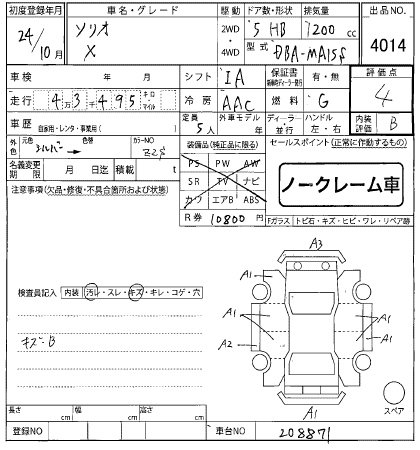 初度登録年月 車名・グレード 駆動 ドア数・形状 排気量 出品NO.
24/10月 ソリオ X 2WD 4WD 5 HB 1200 cc 4014
型式 DBA-MA15S
車検 年 月 シフト IA 保証書 有・無 評価点
走行 4万3千495 キロ マイル 冷房 AAC 燃料 G 4
車歴 自家用・レンタ・事業用( ) 定員 5人 外車モデル 年 ディーラー 並行 ハンドル 左・右 内装評価 B
外色 元色 シルバー → 色替 カラーNO Z2S 装備品(純正品に限る) セールスポイント(正常に作動するもの)
名義変更期限 月 日迄 積載 t PS PW AW
SR TV ナビ
カワ エアB ABS
ノークレーム車
注意事項(欠品・修復・不具合箇所および状態)
R券 10800 円 Fガラス トビ石・キズ・ヒビ・ワレ・リペア跡
A3
A1 A1
検査員記入 内装 汚レ・スレ・キズ・キレ・コゲ・穴
A1 A1
キズ-B A2 A1
A1 スペア
長さ cm 幅 cm 高さ cm
登録NO 車台NO 208871